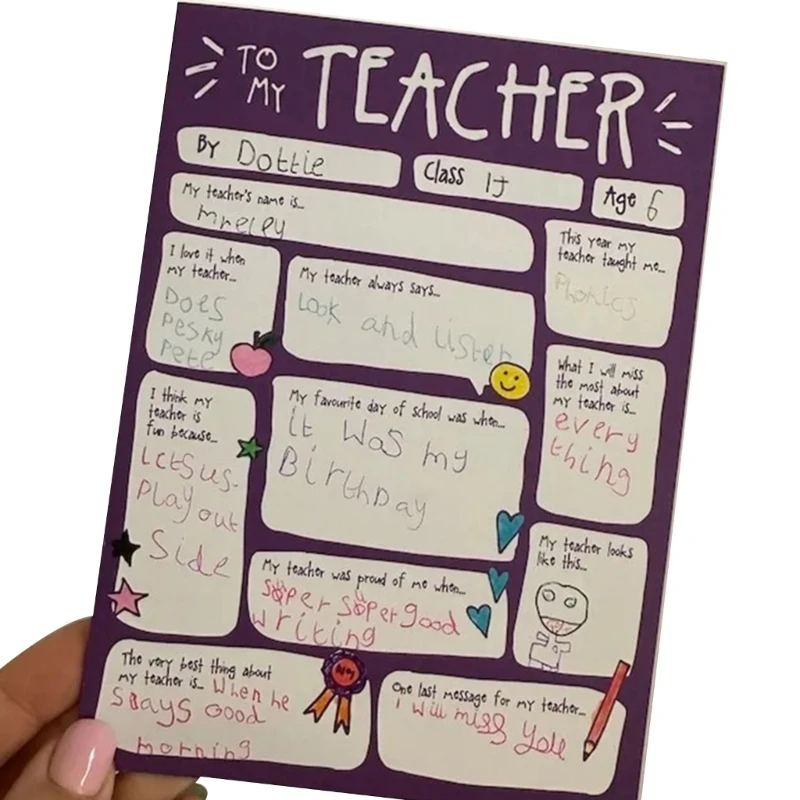 TO
MY TEACHER
BY Dottie
Class 1J
Age 6
My teacher's name is...
mreley
This year my
teacher taught me...
Phonics
I love it when
my teacher...
Does
pesky
pete
My teacher always says...
Look and listen
What I will miss
the most about
my teacher is...
every
thing
I think my
teacher is
fun because...
Letsus
Play out
Side
My favourite day of school was when...
it was my
BirthDay
My teacher looks
like this...
My teacher was proud of me when...
super super good
writing
The very best thing about
my teacher is... When he
says Good
morning
One last message for my teacher...
i will miss you